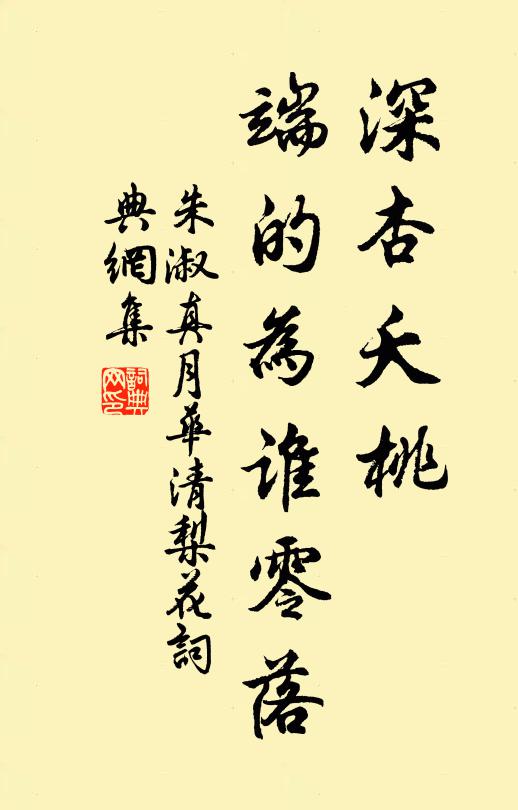 深杏夭桃
端的為誰零落
朱淑真月華清梨花詞
典網集
詞典
网印